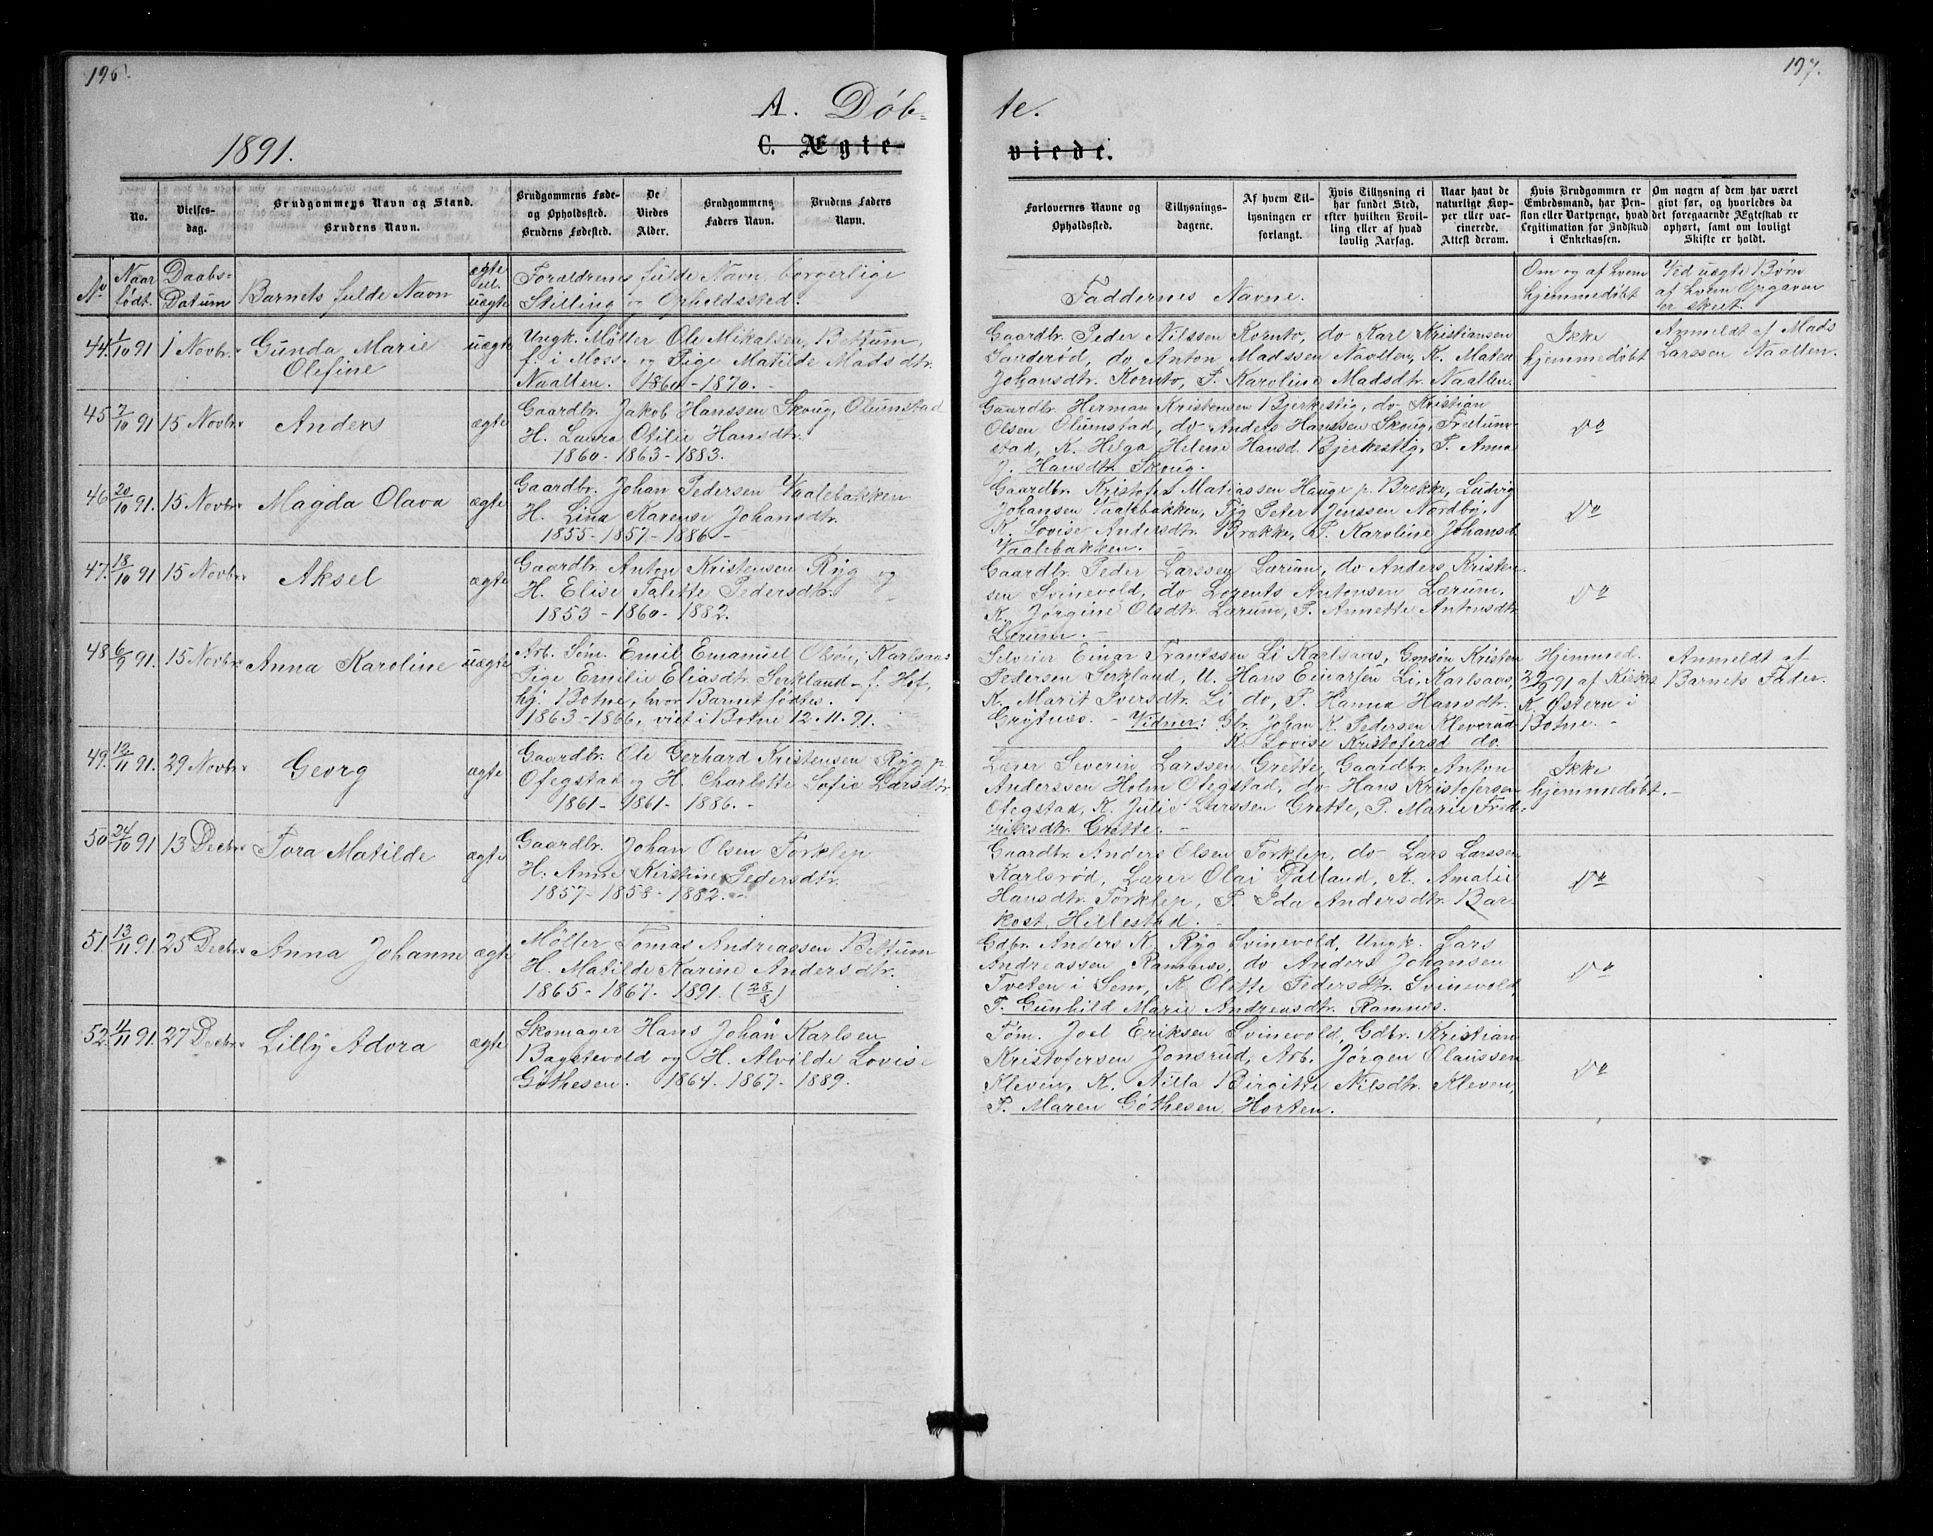 196.
197.
A. Døb-
te.
1891.
C. Ægte-
viede.
No.
Vielses-
dag.
Brudgommens Navn og Stand.
Brudens Navn.
Brudgommens Føde-
og Opholdsted.
Brudens Fødested.
De
Viedes
Alder.
Brudgommens
Faders Navn.
Brudens Faders
Navn.
Forlovernes Navne og
Opholdsted.
Tillysnings-
dagene.
Af hvem Til-
lysningen er
forlangt.
Hvis Tillysning ei
har fundet Sted,
efter hvilken Bevil-
ling eller af hvad
lovlig Aarsag.
Naar havt de
naturlige Kop-
per eller vac-
cinerede.
Attest derom.
Hvis Brudgommen er
Embedsmand, har Pen-
sion eller Vartpenge, hvad
Legitimation for Indskud
i Enkekassen.
Om nogen af dem har været
givt før, og hvorledes da
det foregaaende Ægteskab er
ophørt, samt om lovligt
Skifte er holdt.
No
Naar
født.
Daabs-
Datum
Barnets fulde Navn
ægte
ell.
uægte
Forældrenes fulde Navn, borgerlige
Stilling og Opholdssted.
Faddernes Navne.
Om og af hvem
hjemmedøbt
Ved uægte Børn
af hvem Opgaven
er skeet.
44. 1/10 91 1 Novbr. Gunda Marie
Olefine
uægte
Ungk. Møller Ole Mikalsen, Bettum,
f. i Moss og Pige Matilde Madsdtr.
Naalten. 1860 - 1870. -
Gaardbr. Peder Nilssen Kornto, do Karl Kristiansen
Sanderød, do Anton Madssen Naalten, K. Maten
Johansdtr. Kornto, P. Karoline Madsdtr. Naalten.
Ikke
hjemmedøbt
Anmeldt af Mads
Larssen Naalten.
45 7/10 91 15 Novbr. Anders ægte
Gaardbr. Jakob Hanssen Skoug, Olumstad
H. Laura Otilie Hansdtr.
1860 - 1863 - 1883.
Gaardbr. Herman Kristensen Bjerkestig, do Kristian
Olsen Olumstad, do Anders Hanssen Skoug, Fretum-
stad, K. Helga Helene Hansd. Bjerkestig, P. Anna
J. Hansdtr. Skoug.
Do
46 20/10 91. 15 Novbr. Magda Olava ægte
Gaardbr. Johan Pedersen Vaalebakken
H. Lina Karense Johansdtr.
1855 - 1857 - 1886 -
Gaardbr. Kristofer Matiassen Hauge p. Brekke, Ludvig
Johansen Vaalebakken, Pig Peter Jenssen Nordbø,
K. Lovise Andersdtr. Brekke, P. Karoline Johansd.
Vaalebakken.
Do
47. 18/10 91 15 Novbr. Aksel ægte
Gaardbr. Anton Kristensen Ryg og
H. Elise Talette Pedersdtr.
1853 - 1860 - 1882.
Gaardbr. Peder Larssen Lærum, do Anders Kristen-
sen Svinevold, do Lorents Antonsen Lærum,
K. Jørgine Olsdtr. Lærum, P. Annette Antonsdtr.
Lærum. -
Do
48 6/9 91. 15 Novbr. Anna Karoline uægte
Arb. Søm. Emil Emanuel Olsøn, Karlsaas
Pige Emilie Eliasdtr. Serkland - f. Hof,
hj. Botne, hvor Barnet fødtes.
1863 - 1866, viet i Botne 12.11.91.
Selveier Einar Frantssen Li Karlsaas, Gmsøn Kristen
Pedersen Serkland, U. Hans Einarsen Li, Karlsaas,
K. Marit Iversdtr. Li do, P. Hanna Hansdtr.
Grøtnæs. - Vidner: Gbr. Johan K. Pedersen Kleverud
K. Lovise Kristofersd do.
Hjemmed.
/9 91 af Kirkes.
K. Østern i
Botne. -
Anmeldt af
Barnets Fader.
49. 12/11 91. 29 Novbr. Georg ægte
Gaardbr. Ole Gerhard Kristensen Ryg p.
Ofegstad og H. Charlotte Sofie Larsdtr.
1861 - 1861 - 1886. -
Lærer Severin Larssen Grette, Gaardbr. Anton
Anderssen Holm Ofegstad, do Hans Kristofersen
Ofegstad, K. Julie Larssen Grette, P. Marie Fred-
riksdtr. Grette. -
Ikke
hjemmedøbt. -
50 24/10 91 13 Decbr. Tora Matilde ægte
Gaardbr. Johan Olsen Torklep
H. Anne Kirstine Pedersdtr.
1857 - 1858 - 1882. -
Gaardbr. Anders Olsen Torklep, do Lars Larssen
Karlsrød, Lærer Olai Dalland, K. Amalie
Hansdtr. Torklep, P Ida Andersdtr. Bar-
kost, Hillestad. -
Do
51. 13/11 91. 25 Decbr. Anna Johanne ægte
Møller Tomas Andreassen Bettum
H. Matilde Karine Andersdtr.
1865 - 1867. 1891. (28/8)
Gdbr. Anders K. Ryg Svinevold, Ungk. Lars
Andreassen Ramnæs, do Anders Johansen
Tveten i Sem, K. Olette Pedersdtr. Svinevold,
P. Gunhild Marie Andreasdtr. Ramnæs.
Do
52. 4/11 91. 27 Decbr. Lilly Adora ægte
Skomager Hans Johan Karlsen
Bagstevold og H. Alvilde Lovise
Gøthesen. 1864. 1867. 1889.
Tøm. Joel Eriksen Svinevold, Gdbr. Kristian
Kristofersen Jonsrud, Arb. Jørgen Olaussen
Kleven, K. Nilla Birgitte Nilsdtr. Kleven,
P. Maren Gøthesen Horten.
Do